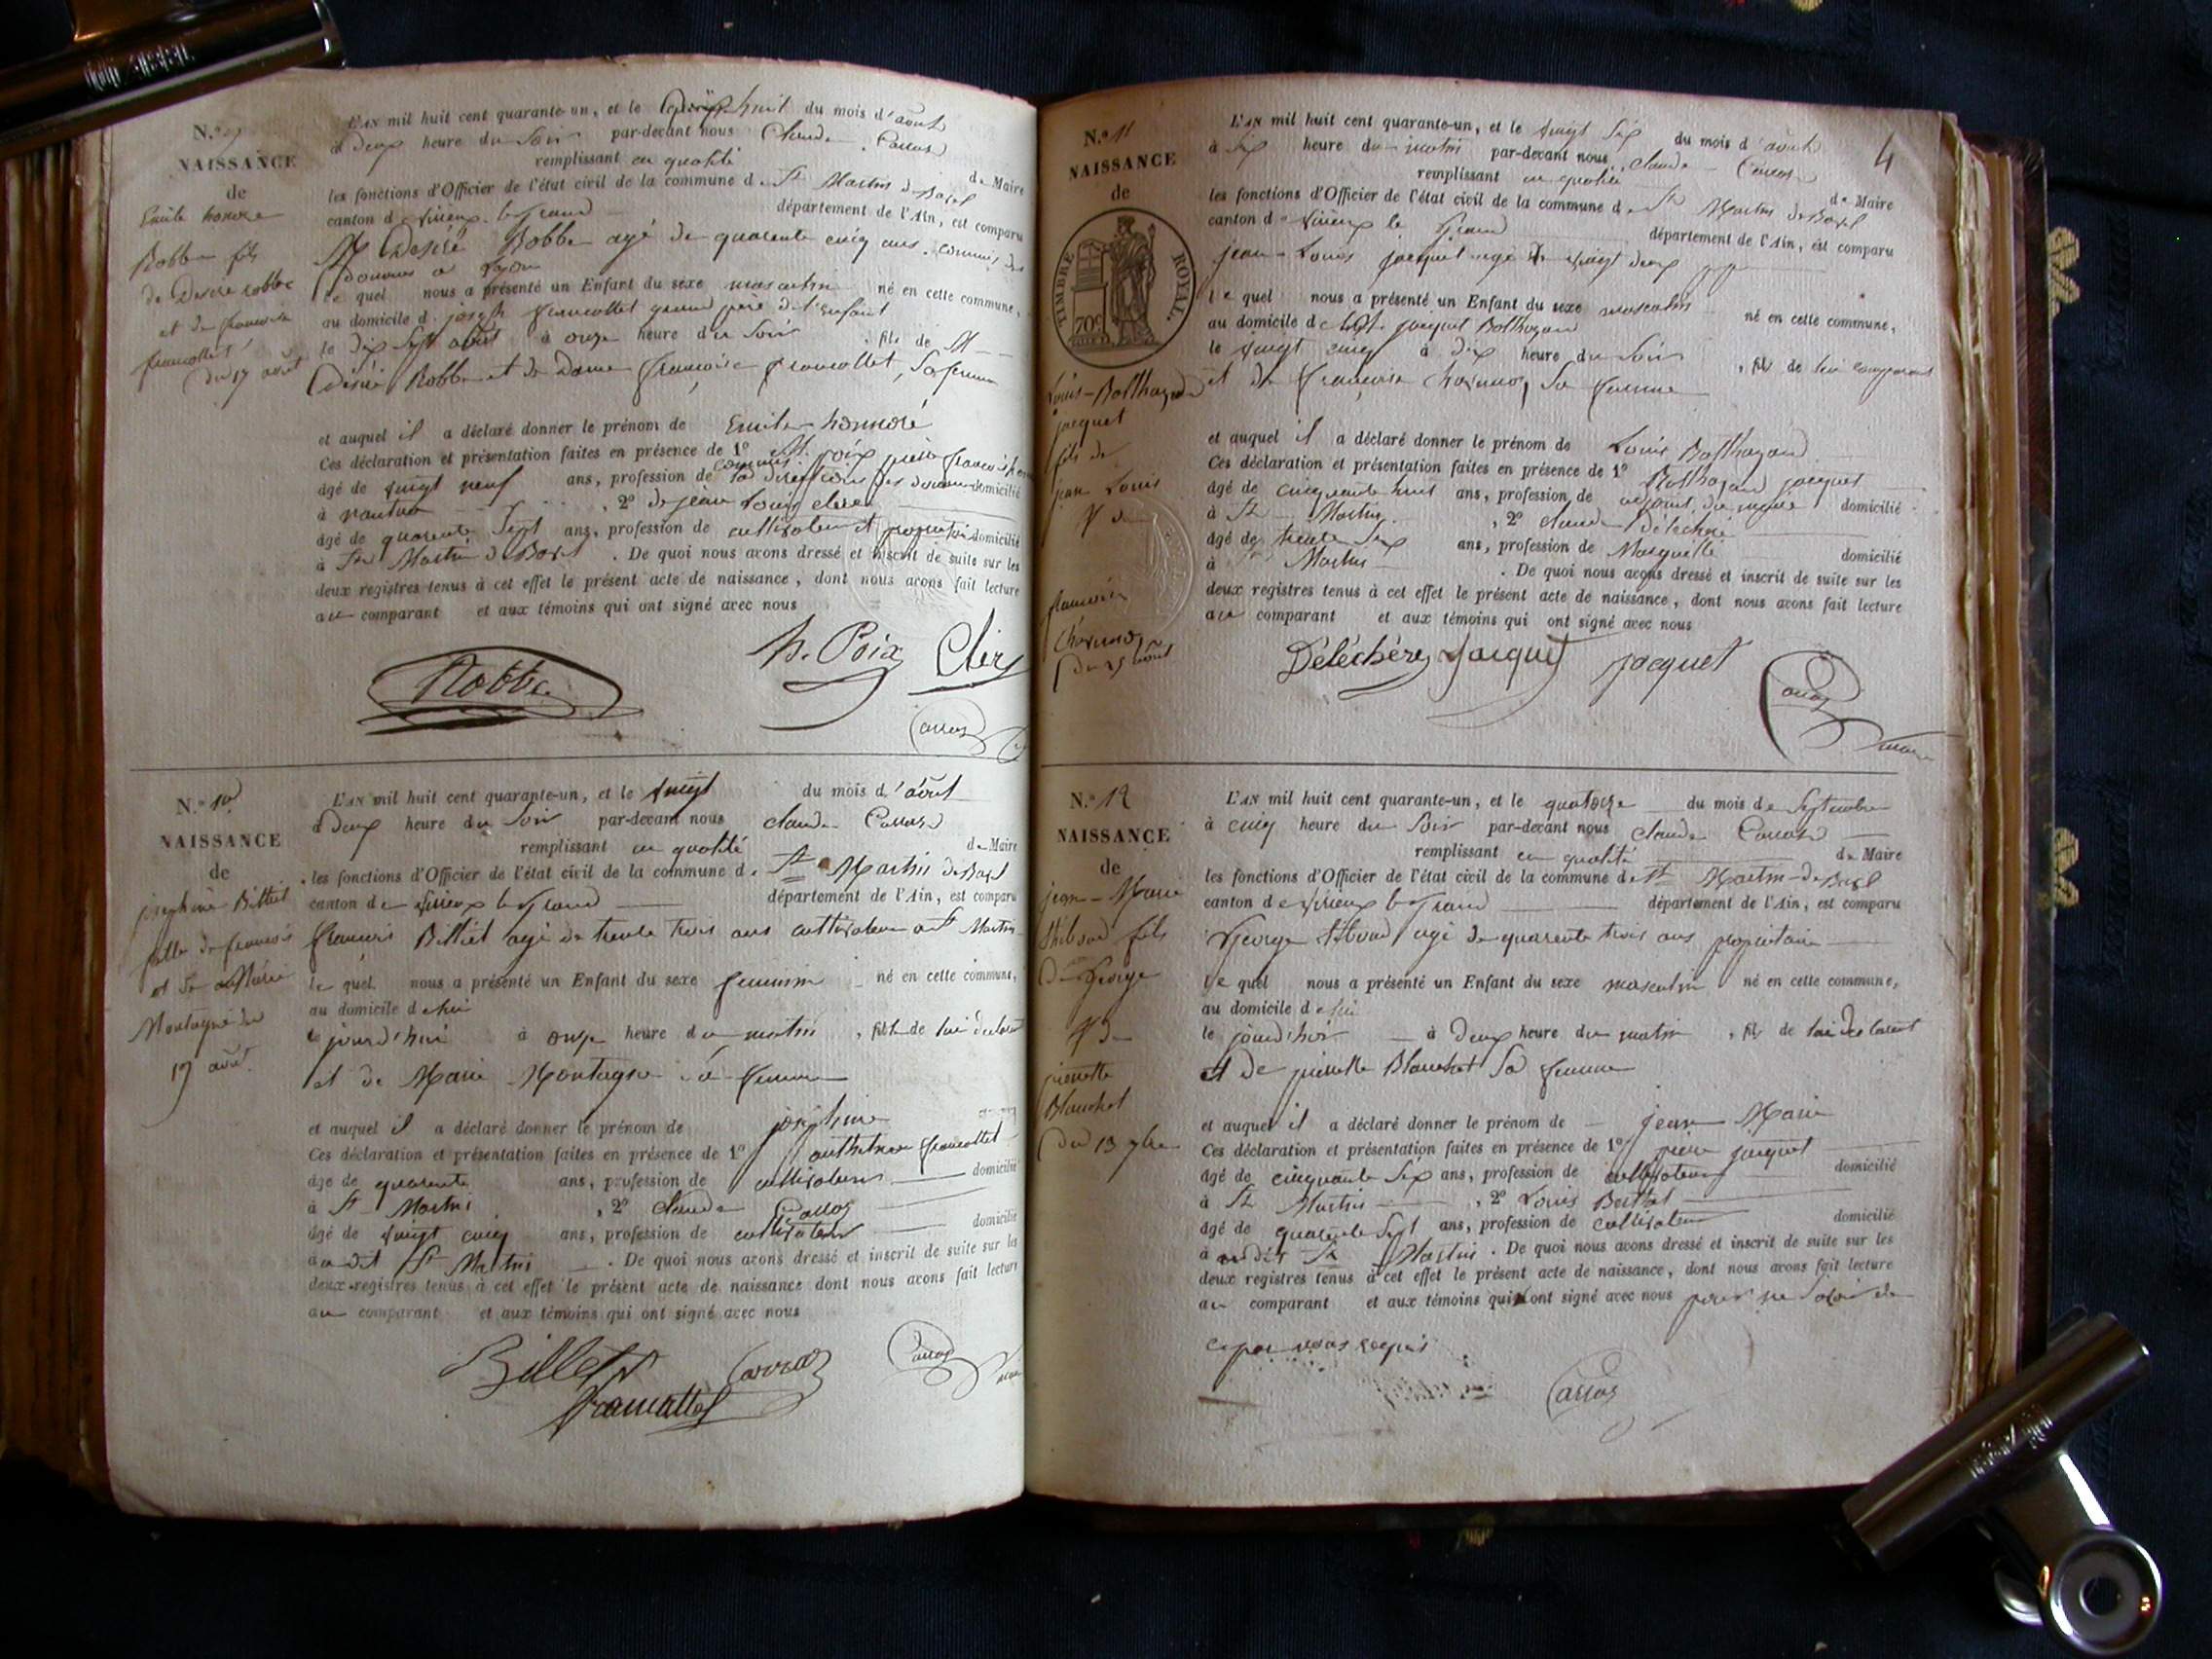 N.º 9
NAISSANCE
de
Emile honore
Robbe fils
de Desiré robbe
et de francoise
francollet
du 17 août
L'AN mil huit cent quarante-un, et le dix huit du mois d'août
à Deux heure du Soir par-devant nous Claude Carraz
remplissant en qualité de Maire
les fonctions d'Officier de l'état civil de la commune de St Martin de Bavel
canton de Virieux le Grand département de l'Ain, est comparu
Mr Desiré Robbe agé de quarente cinq ans commis des
Douanes a Lyon
le quel nous a présenté un Enfant du sexe masculin né en cette commune,
au domicile de joseph francollet grand père de l'enfant
le dix Sept août à onze heure du Soir , fils de Mr
Désiré Robbe et de Dame françoise francollet, Sa femme
et auquel il a déclaré donner le prénom de Emile honnoré
Ces déclaration et présentation faites en présence de 1º Mr poix pierre françois
âgé de vingt neuf ans, profession de commis a la direction des douanes domicilié
à nantua , 2º de jean Louis clerc
âgé de quarente Sept ans, profession de cultivateur et propriétaire domicilié
à St Martin de Bavel . De quoi nous avons dressé et inscrit de suite sur les
deux registres tenus à cet effet le présent acte de naissance, dont nous avons fait lecture
au comparant et aux témoins qui ont signé avec nous
Robbe
h. Poix Clerc
Carraz
N.º 10
NAISSANCE
de
josephine Billiet
fille de francois
et de Marie
Montagne du
19 août
L'AN mil huit cent quarante-un, et le vingt du mois d'août
à Deux heure du Soir par-devant nous claude Carraz
remplissant en qualité de Maire
les fonctions d'Officier de l'état civil de la commune de St Martin de Bavel
canton de Virieux le Grand département de l'Ain, est comparu
francois Billiet agé de trente trois ans cultivateur a St Martin
le quel nous a présenté un Enfant du sexe feminin né en cette commune,
au domicile de lui
le jourd'hui à onze heure du matin , fille de lui declarant
et de Marie Montagne sa femme
et auquel il a déclaré donner le prénom de josephine
Ces déclaration et présentation faites en présence de 1º francollet
âgé de quarente ans, profession de cultivateur domicilié
à St Martin , 2º claude Carraz
âgé de vingt cinq ans, profession de cultivateur domicilié
à udit St Martin . De quoi nous avons dressé et inscrit de suite sur les
deux registres tenus à cet effet le présent acte de naissance dont nous avons fait lecture
au comparant et aux témoins qui ont signé avec nous
Billiet Carraz Carraz
francollet
4
N.º 11
NAISSANCE
de
TIMBRE ROYAL.
70c
Louis-Balthazard
jacquet
fils de
jean Louis
& de
francoise
Charvin
du 25 août
L'AN mil huit cent quarante-un, et le vingt Six du mois d'août
à Six heure du matin par-devant nous claude Carraz
remplissant en qualité de Maire
les fonctions d'Officier de l'état civil de la commune de St Martin de Bavel
canton de Virieux le Grand département de l'Ain, est comparu
jean Louis jacquet agé de vingt deux
le quel nous a présenté un Enfant du sexe masculin né en cette commune,
au domicile de jacquet Balthazard
le vingt cinq à dix heure du Soir , fils de lui comparant
et de françoise Sa femme
et auquel il a déclaré donner le prénom de Louis Balthazard
Ces déclaration et présentation faites en présence de 1º Balthazard jacquet
âgé de cinquante huit ans, profession de adjoint du maire domicilié
à St Martin , 2º claude Deléchère
âgé de trente Six ans, profession de domicilié
à St Martin . De quoi nous avons dressé et inscrit de suite sur les
deux registres tenus à cet effet le présent acte de naissance, dont nous avons fait lecture
au comparant et aux témoins qui ont signé avec nous
Deléchère Jacquet jacquet
Carraz
N.º 12
NAISSANCE
de
jean-Marie
thiboud fils
de George
& de
pierrette
Blanchet
du 13 7bre
L'AN mil huit cent quarante-un, et le quatorze du mois de Septembre
à cinq heure du Soir par-devant nous claude Carraz
remplissant en qualité de Maire
les fonctions d'Officier de l'état civil de la commune de St Martin de Bavel
canton de Virieux le Grand département de l'Ain, est comparu
George thiboud agé de quarente trois ans propriétaire
le quel nous a présenté un Enfant du sexe masculin né en cette commune,
au domicile de lui
le jourd'hui à Deux heure du matin , fils de lui declarant
et de pierrette Blanchet Sa femme
et auquel il a déclaré donner le prénom de jean Marie
Ces déclaration et présentation faites en présence de 1º pierre jacquet
âgé de cinquante Six ans, profession de cultivateur domicilié
à St Martin , 2º Louis Berthet
âgé de quarente Sept ans, profession de cultivateur domicilié
à udit St Martin . De quoi nous avons dressé et inscrit de suite sur les
deux registres tenus à cet effet le présent acte de naissance, dont nous avons fait lecture
au comparant et aux témoins qui ont signé avec nous pour ne Savoir de
ce par nous requis
Carraz